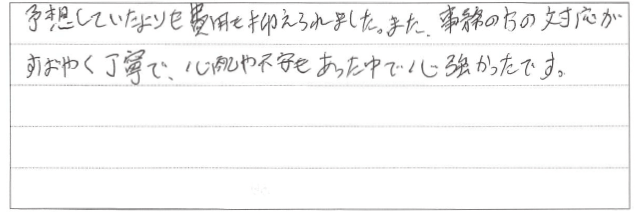 予想していたよりも費用も抑えられました。また、事務の方の対応が
すばやく丁寧で、心配や不安もあった中で心強かったです。